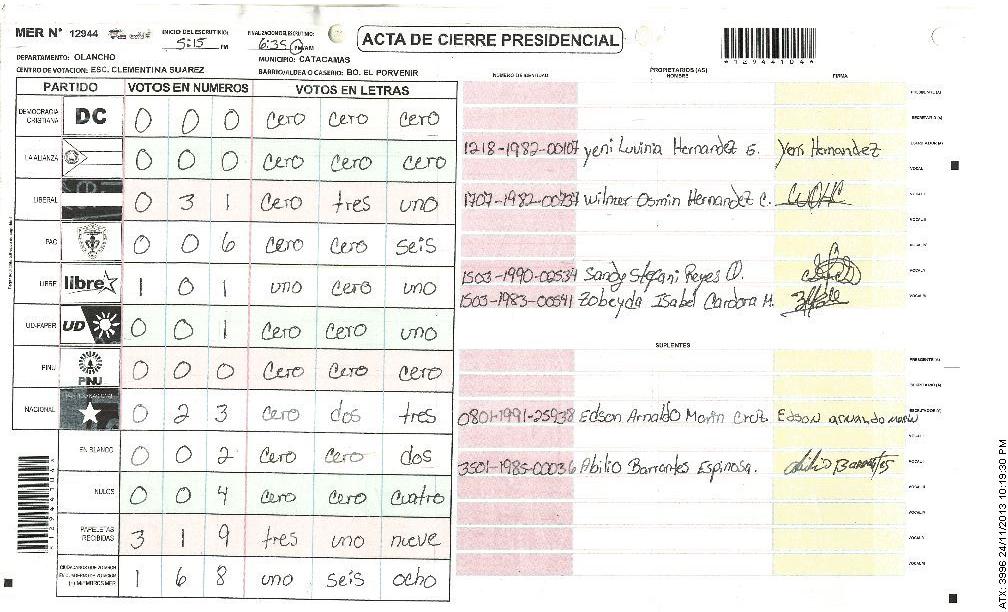 MER N° 12944
INICIO DEL ESCRUTINIO:
5:15 PM
FINALIZACION DEL ESCRUTINIO:
6:35 PM AM
ACTA DE CIERRE PRESIDENCIAL
*12944104*
DEPARTAMENTO: OLANCHO
MUNICIPIO: CATACAMAS
CENTRO DE VOTACION: ESC. CLEMENTINA SUAREZ
BARRIO/ALDEA O CASERIO: BO. EL PORVENIR
PARTIDO VOTOS EN NUMEROS VOTOS EN LETRAS
DEMOCRACIA CRISTIANA DC 0 0 0 cero cero cero
LA ALIANZA 0 0 0 cero cero cero
LIBERAL 0 3 1 cero tres uno
PAC 0 0 6 cero cero seis
LIBRE libre 1 0 1 uno cero uno
UD-FAPER UD 0 0 1 cero cero uno
PINU PINU 0 0 0 cero cero cero
NACIONAL 0 2 3 cero dos tres
EN BLANCO 0 0 2 cero cero dos
NULOS 0 0 4 cero cero cuatro
PAPELETAS RECIBIDAS 3 1 9 tres uno nueve
1 6 8 uno seis ocho
NUMERO DE IDENTIDAD PROPIETARIOS (AS) NOMBRE FIRMA
PRESIDENTE (A)
SECRETARIO (A)
1218-1982-00107 Yeni Luvina Hernandez G. Yeni Hernandez ESCRUTADOR (A)
VOCAL
1707-1982-00737 Wilmer Osmin Hernandez C.
1503-1990-02534 Sandy Stefani Reyes O.
1503-1983-00541 Zobeyda Isabel Cardona M.
SUPLENTES
PRESIDENTE (A)
SECRETARIO (A)
0801-1991-25938 Edson Arnaldo Marin Cruz Edson Armando Marin ESCRUTADOR (A)
3501-1985-00036 Abilio Barrantes Espinosa. Abilio Barrantes
ATX: 3996 24/11/2013 10:19:30 PM